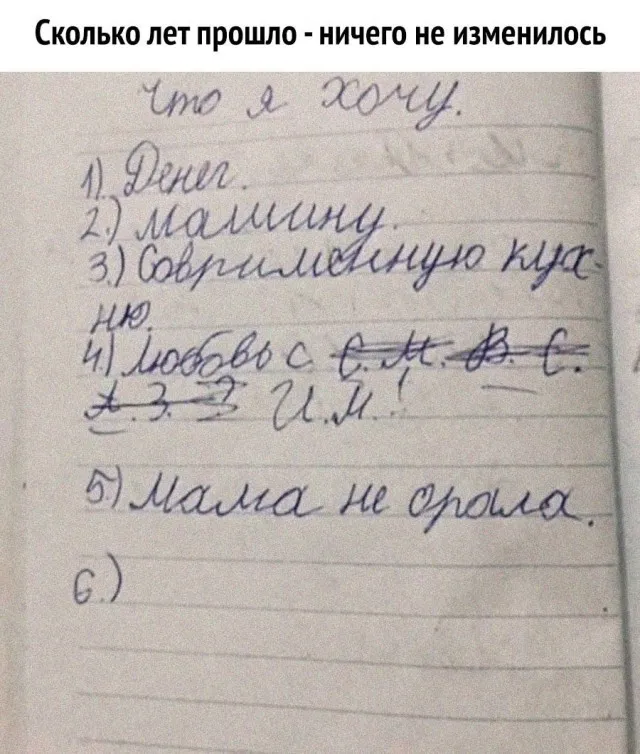 Сколько лет прошло - ничего не изменилось
Что я хочу.
1) Денег.
2.) Машину.
3.) Соврименную кух-
ню.
4) Любовь с С. М. В. С.
А. З. И.М.!
5) Мама не орала.
6.)